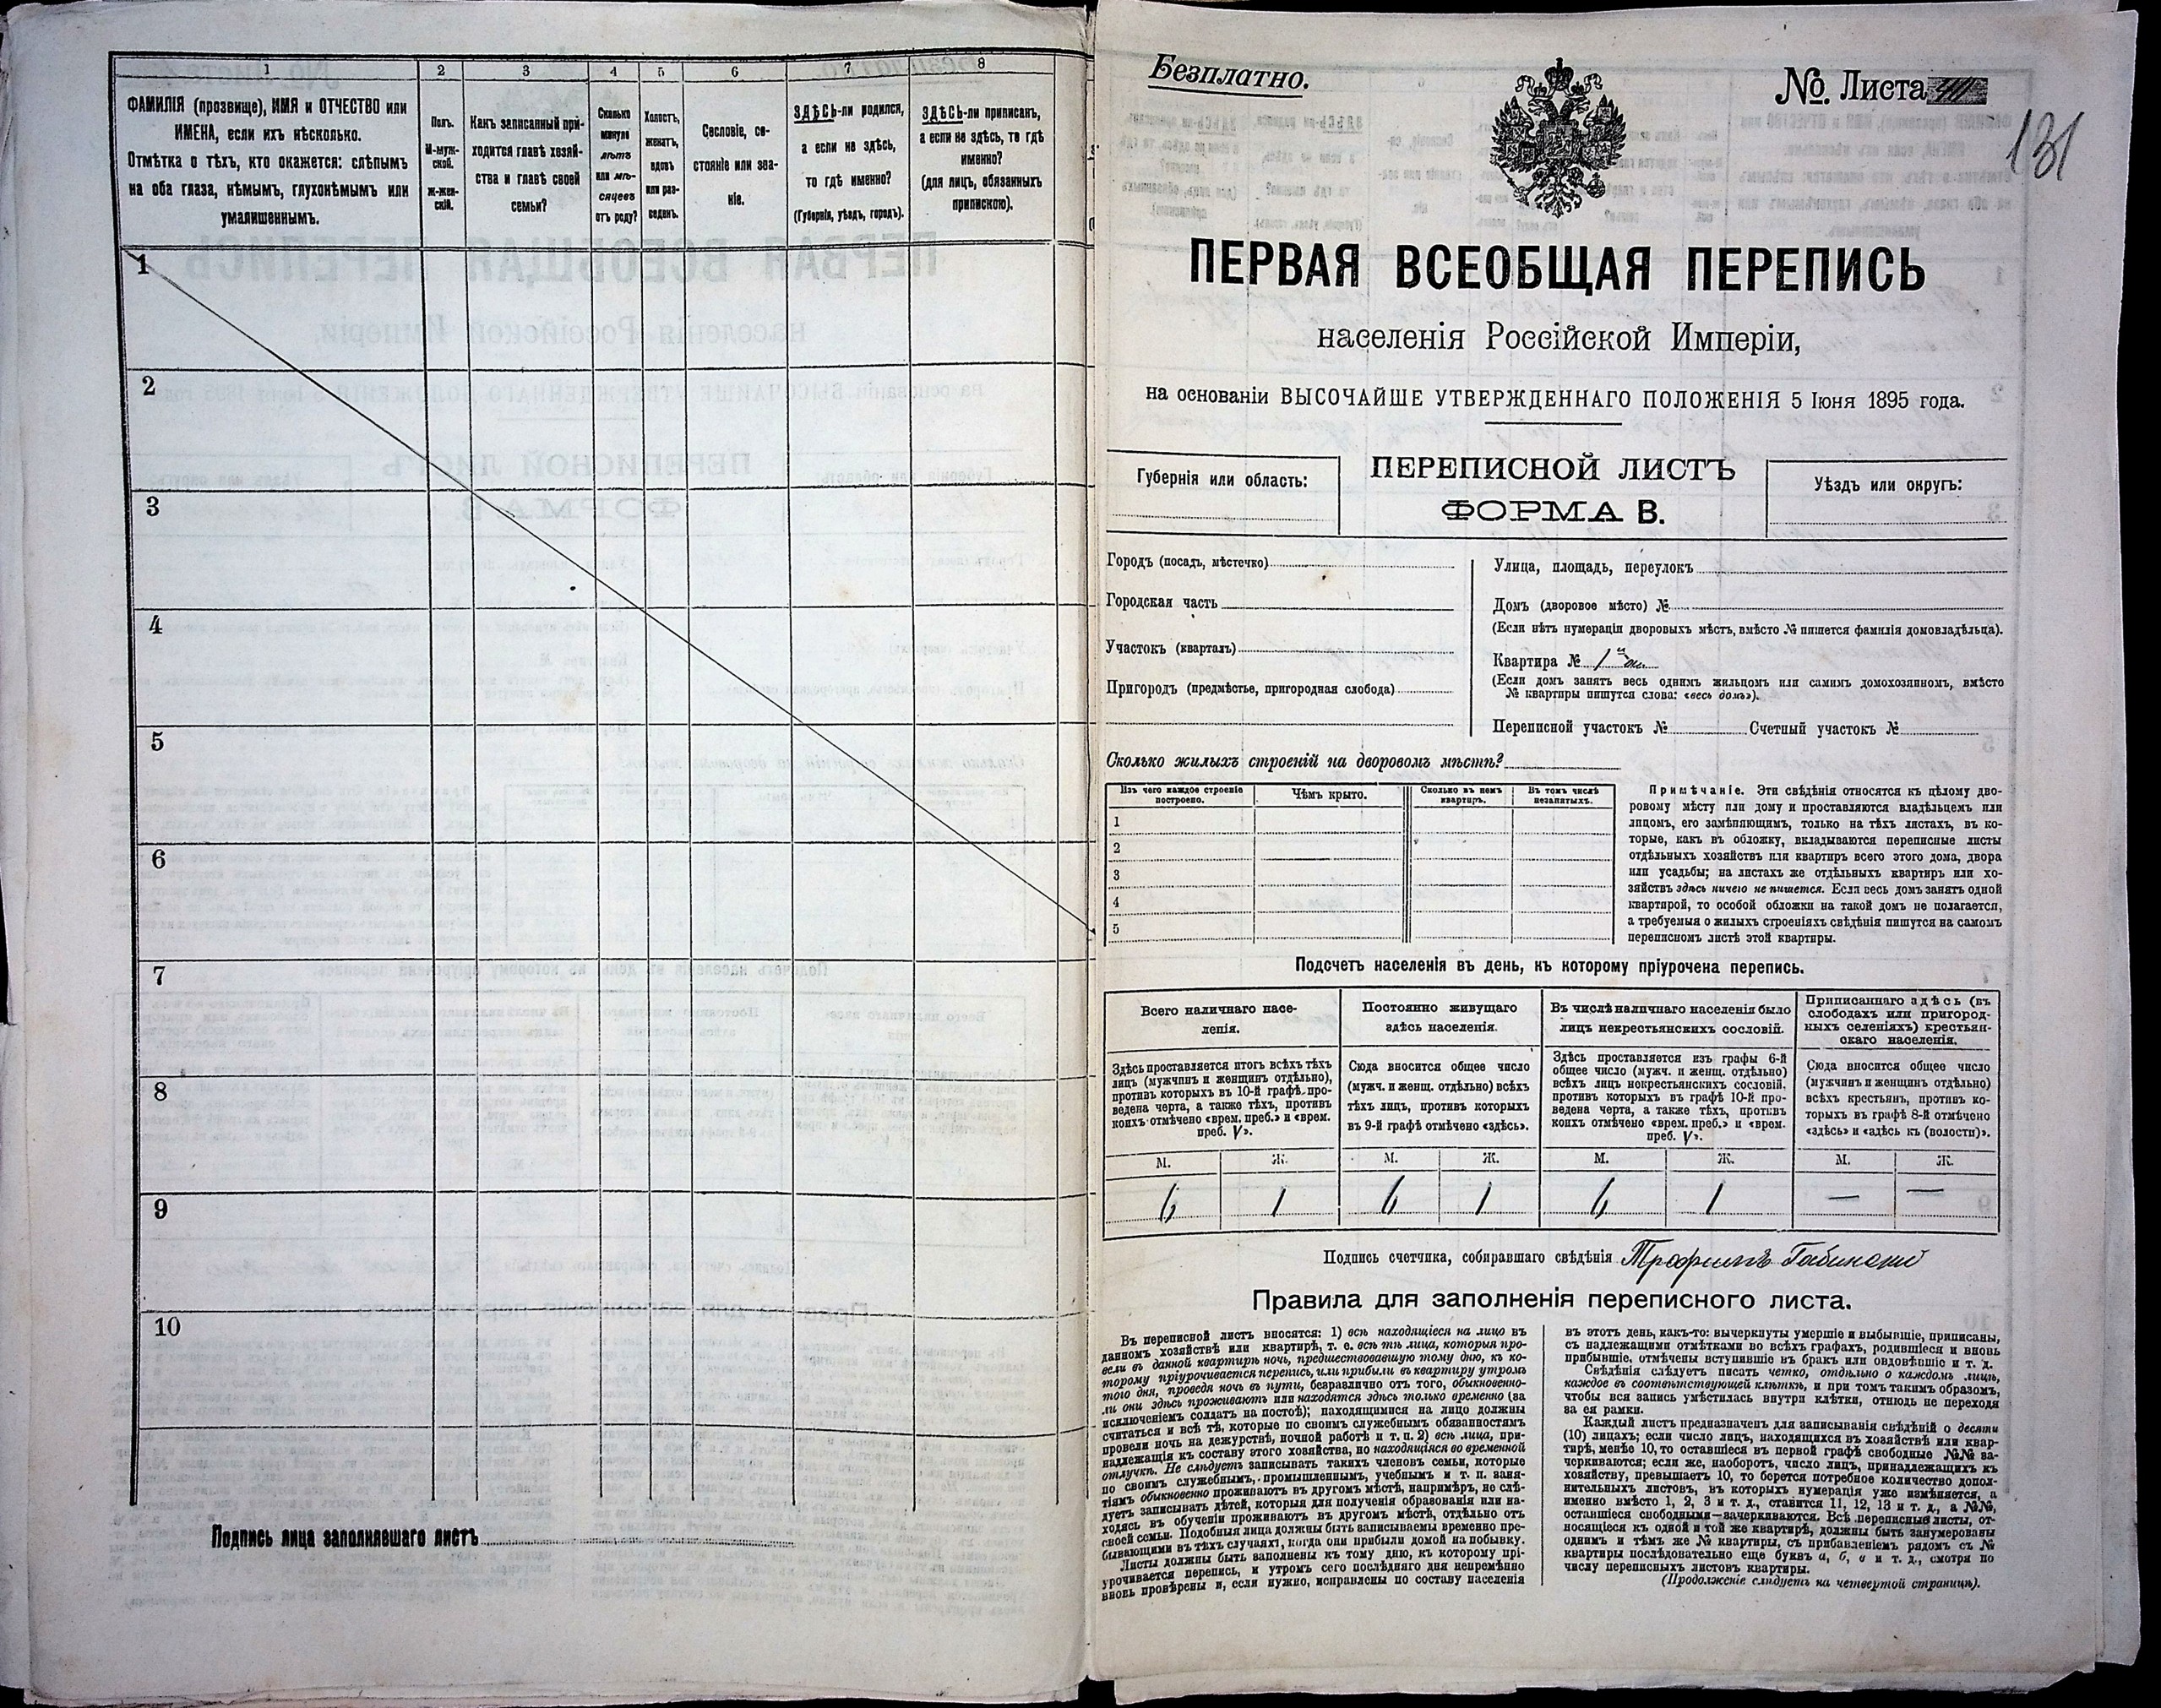 1
2
3
4
5
6
7
8
ФАМИЛІЯ (прозвище), ИМЯ и ОТЧЕСТВО или
ИМЕНА, если ихъ нѣсколько.
Отмѣтка о тѣхъ, кто окажется: слѣпымъ
на оба глаза, нѣмымъ, глухонѣмымъ или
умалишеннымъ.
Полъ.
М-муж-
ской.
Ж-жен-
скій.
Какъ записанный при-
ходится главѣ хозяй-
ства и главѣ своей
семьи?
Сколько
минуло
лѣтъ
или мѣ-
сяцевъ
отъ роду?
Холостъ,
женатъ,
вдовъ
или раз-
веденъ.
Сословіе, со-
стояніе или зва-
ніе.
ЗДѢСЬ-ли родился,
а если не здѣсь,
то гдѣ именно?
(Губернія, уѣздъ, городъ).
ЗДѢСЬ-ли приписанъ,
а если не здѣсь, то гдѣ
именно?
(для лицъ, обязанныхъ
припискою).
1
2
3
4
5
6
7
8
9
10
Подпись лица заполнявшаго листъ
Безплатно.
№. Листа
131
ПЕРВАЯ ВСЕОБЩАЯ ПЕРЕПИСЬ
населенія Россійской Имперіи,
на основаніи ВЫСОЧАЙШЕ УТВЕРЖДЕННАГО ПОЛОЖЕНІЯ 5 Іюня 1895 года.
Губернія или область:
ПЕРЕПИСНОЙ ЛИСТЪ
ФОРМА В.
Уѣздъ или округъ:
Городъ (посадъ, мѣстечко)
Городская часть
Участокъ (кварталъ)
Пригородъ (предмѣстье, пригородная слобода)
Улица, площадь, переулокъ
Домъ (дворовое мѣсто) №
(Если нѣтъ нумераціи дворовыхъ мѣстъ, вмѣсто № пишется фамилія домовладѣльца).
Квартира № 1
(Если домъ занятъ весь однимъ жильцомъ или самимъ домохозяиномъ, вмѣсто
№ квартиры пишутся слова: «весь домъ»).
Переписной участокъ № Счетный участокъ №
Сколько жилыхъ строеній на дворовомъ мѣстѣ?
Изъ чего каждое строеніе
построено.
Чѣмъ крыто.
Сколько въ немъ
квартиръ.
Въ томъ числѣ
незанятыхъ.
1
2
3
4
5
Примѣчаніе. Эти свѣдѣнія относятся къ цѣлому дво-
ровому мѣсту или дому и проставляются владѣльцемъ или
лицомъ, его замѣняющимъ, только на тѣхъ листахъ, въ ко-
торые, какъ въ обложку, вкладываются переписные листы
отдѣльныхъ хозяйствъ или квартиръ всего этого дома, двора
или усадьбы; на листахъ же отдѣльныхъ квартиръ или хо-
зяйствъ здѣсь ничего не пишется. Если весь домъ занятъ одной
квартирой, то особой обложки на такой домъ не полагается,
а требуемыя о жилыхъ строеніяхъ свѣдѣнія пишутся на самомъ
переписномъ листѣ этой квартиры.
Подсчетъ населенія въ день, къ которому пріурочена перепись.
Всего наличнаго насе-
ленія.
Постоянно живущаго
здѣсь населенія.
Въ числѣ наличнаго населенія было
лицъ некрестьянскихъ сословій.
Приписаннаго здѣсь (въ
слободахъ или пригород-
ныхъ селеніяхъ) крестьян-
скаго населенія.
Здѣсь проставляется итогъ всѣхъ тѣхъ
лицъ (мужчинъ и женщинъ отдѣльно),
противъ которыхъ въ 10-й графѣ про-
ведена черта, а также тѣхъ, противъ
коихъ отмѣчено «врем. преб.» и «врем.
преб. V».
Сюда вносится общее число
(мужч. и женщ. отдѣльно) всѣхъ
тѣхъ лицъ, противъ которыхъ
въ 9-й графѣ отмѣчено «здѣсь».
Здѣсь проставляется изъ графы 6-й
общее число (мужч. и женщ. отдѣльно)
всѣхъ лицъ некрестьянскихъ сословій,
противъ которыхъ въ графѣ 10-й про-
ведена черта, а также тѣхъ, противъ
коихъ отмѣчено «врем. преб.» и «врем.
преб. V».
Сюда вносится общее число
(мужчинъ и женщинъ отдѣльно)
всѣхъ крестьянъ, противъ ко-
торыхъ въ графѣ 8-й отмѣчено
«здѣсь» и «здѣсь къ (волости)».
М. Ж. М. Ж. М. Ж. М. Ж.
6 1 6 1 6 1 — —
Подпись счетчика, собиравшаго свѣдѣнія Трофимъ
Правила для заполненія переписного листа.
Въ переписной листъ вносятся: 1) всѣ находящіеся на лицо въ
данномъ хозяйствѣ или квартирѣ, т. е. всѣ тѣ лица, которыя про-
вели въ данной квартирѣ ночь, предшествовавшую тому дню, къ ко-
торому пріурочивается перепись, или прибыли въ квартиру утромъ
того дня, проведя ночь въ пути, безразлично отъ того, обыкновенно-
ли они здѣсь проживаютъ или находятся здѣсь только временно (за
исключеніемъ солдатъ на постоѣ); находящимися на лицо должны
считаться и всѣ тѣ, которые по своимъ служебнымъ обязанностямъ
провели ночь на дежурствѣ, ночной работѣ и т. п. 2) всѣ лица, при-
надлежащія къ составу этого хозяйства, но находящіяся во временной
отлучкѣ. Не слѣдуетъ записывать такихъ членовъ семьи, которые
по своимъ служебнымъ, промышленнымъ, учебнымъ и т. п. заня-
тіямъ обыкновенно проживаютъ въ другомъ мѣстѣ, напримѣръ, не слѣ-
дуетъ записывать дѣтей, которыя для полученія образованія или на-
ходясь въ обученіи проживаютъ въ другомъ мѣстѣ, отдѣльно отъ
своей семьи. Подобныя лица должны быть записываемы временно пре-
бывающими въ тѣхъ случаяхъ, когда они прибыли домой на побывку.
Листы должны быть заполнены къ тому дню, къ которому прі-
урочивается перепись, и утромъ сего послѣдняго дня непремѣнно
вновь провѣрены и, если нужно, исправлены по составу населенія
въ этотъ день, какъ-то: вычеркнуты умершіе и выбывшіе, приписаны,
съ надлежащими отмѣтками во всѣхъ графахъ, родившіеся и вновь
прибывшіе, отмѣчены вступившіе въ бракъ или овдовѣвшіе и т. д.
Свѣдѣнія слѣдуетъ писать четко, отдѣльно о каждомъ лицѣ,
каждое въ соотвѣтствующей клѣткѣ, и при томъ такимъ образомъ,
чтобы вся запись умѣстилась внутри клѣтки, отнюдь не переходя
за ея рамки.
Каждый листъ предназначенъ для записыванія свѣдѣній о десяти
(10) лицахъ; если число лицъ, находящихся въ хозяйствѣ или квар-
тирѣ, менѣе 10, то оставшіеся въ первой графѣ свободные №№ за-
черкиваются; если же, наоборотъ, число лицъ, принадлежащихъ къ
хозяйству, превышаетъ 10, то берется потребное количество допол-
нительныхъ листовъ, въ которыхъ нумерація уже измѣняется, а
именно вмѣсто 1, 2, 3 и т. д., ставится 11, 12, 13 и т. д., а №№,
оставшіеся свободными—зачеркиваются. Всѣ переписные листы, от-
носящіеся къ одной и той же квартирѣ, должны быть занумерованы
однимъ и тѣмъ же № квартиры, съ прибавленіемъ рядомъ съ №
квартиры послѣдовательно еще буквъ а, б, в и т. д., смотря по
числу переписныхъ листовъ квартиры.
(Продолженіе слѣдуетъ на четвертой страницѣ).